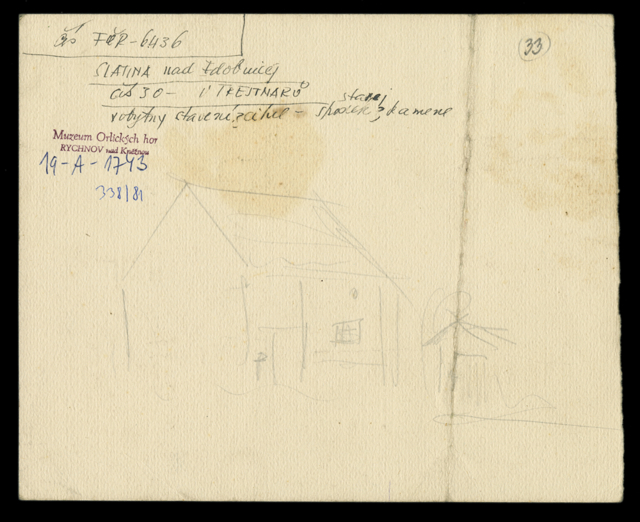 čís FČR-6436
33
SLATINA nad Zdobnicí
čís 30 - U TREJTNARŮ
starý
robytný stavení z cihel - spodek z kamene
Muzeum Orlických hor
RYCHNOV nad Kněžnou
19-A-1743
338/81